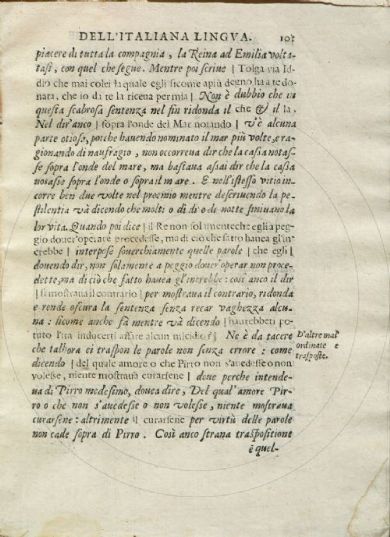 DELL'ITALIANA LINGVA. 103
piacere di tutta la compagnia, la Reina ad Emilia volta
tasi, con quel che segue. Mentre poi scriue | Tolga via Id
dio che mai colei la quale egli sicome apiù degno ha a te do
nara, che io da te la riceua per mia | Non è dubbio che in
questa scabrosa sentenza nel fin ridonda il che & il la.
Nel dir anco | sopra l'onde del Mar notando | v'è alcuna
parte otiosa, perche hauendo nominato il mar più volte, e ra
gionando di naufragio, non occorreua dir che la cassa notas
se sopra l'onde del mare, ma bastaua assai dir che la cassa
notasse sopra l'onde o sopra il mare. E nell'istesso vitio in
corre ben due volte nel proemio mentre descriuendo la pe
stilentia và dicendo che molti o di dì o di notte finiuano la
lor vita. Quando poi dice | il Re non solamente che egli a peg
gio douer' operare procedesse, ma di ciò che fatto hauea gl'in
crebbe | interpose souerchiamente quelle parole | che egli |
douendo dir, non solamente a peggio douer' operar non proce
dette, ma di ciò che fatto hauea gl'increbbe: così anco il dir
| si mostraua il contrario | per mostraua il contrario, ridonda
e rende oscura la sentenza senza recar vaghezza alcu
na: sicome anche fà mentre và dicendo | haurebberi po
tuto l'ira inducerti affare alcun micidio | Ne è da tacere
che talhora ei traspon le parole non senza errore: come
dicendo | del quale amore o che Pirro non s'auedesse o non
volesse, niente mostraua curarsene | doue perche intende-
ua di Pirro medesimo, douea dire, Del qual' amore Pir-
ro o che non s'auedesse o non volesse, niente mostraua
curarsene: altrimente il curarsene per virtù delle parole
non cade sopra di Pirro. Così anco strana traspositione
è quel-
D'altre mal'
ordinate e
trasposte.